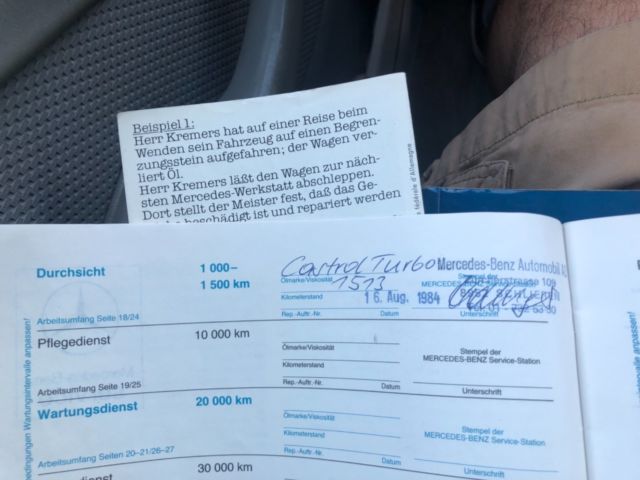 Beispiel 1:
Herr Kremers hat auf einer Reise beim
Wenden sein Fahrzeug auf einen Begren-
zungsstein aufgefahren; der Wagen ver-
liert Öl.
Herr Kremers läßt den Wagen zur näch-
sten Mercedes-Werkstatt abschleppen.
Dort stellt der Meister fest, daß das Ge-
beschädigt ist und repariert werden
fédérale d'Allemagne
Durchsicht 1 000–
1 500 km
Castrol Turbo
Ölmarke/Viskosität
1513
Kilometerstand
16. Aug. 1984
Rep.-Auftr.-Nr. Datum
Mercedes-Benz Automobil AG
Stempel der
Unterschrift
Arbeitsumfang Seite 18/24
Pflegedienst 10 000 km
Ölmarke/Viskosität
Kilometerstand
Rep.-Auftr.-Nr. Datum
Stempel der
MERCEDES-BENZ Service-Station
Unterschrift
Arbeitsumfang Seite 19/25
Wartungsdienst 20 000 km
Ölmarke/Viskosität
Kilometerstand
Rep.-Auftr.-Nr. Datum
Stempel der
MERCEDES-BENZ Service-Station
Unterschrift
Arbeitsumfang Seiten 20–21/26–27
30 000 km
bedingungen Wartungsintervalle anpassen!